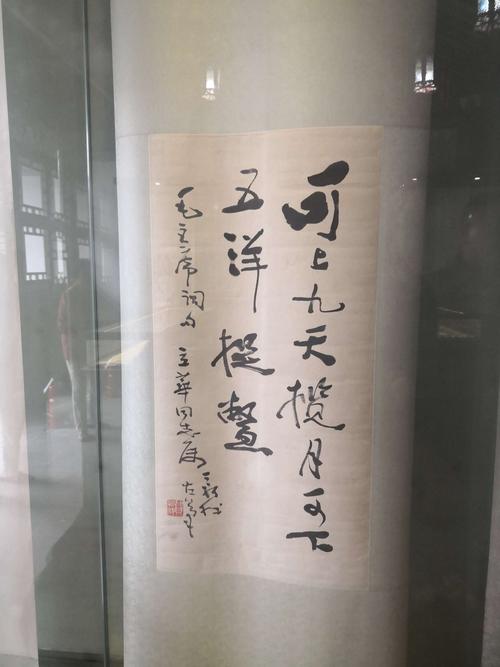 可上九天揽月可下
五洋捉鳖
毛主席词句 立華同志属
新我
左笔